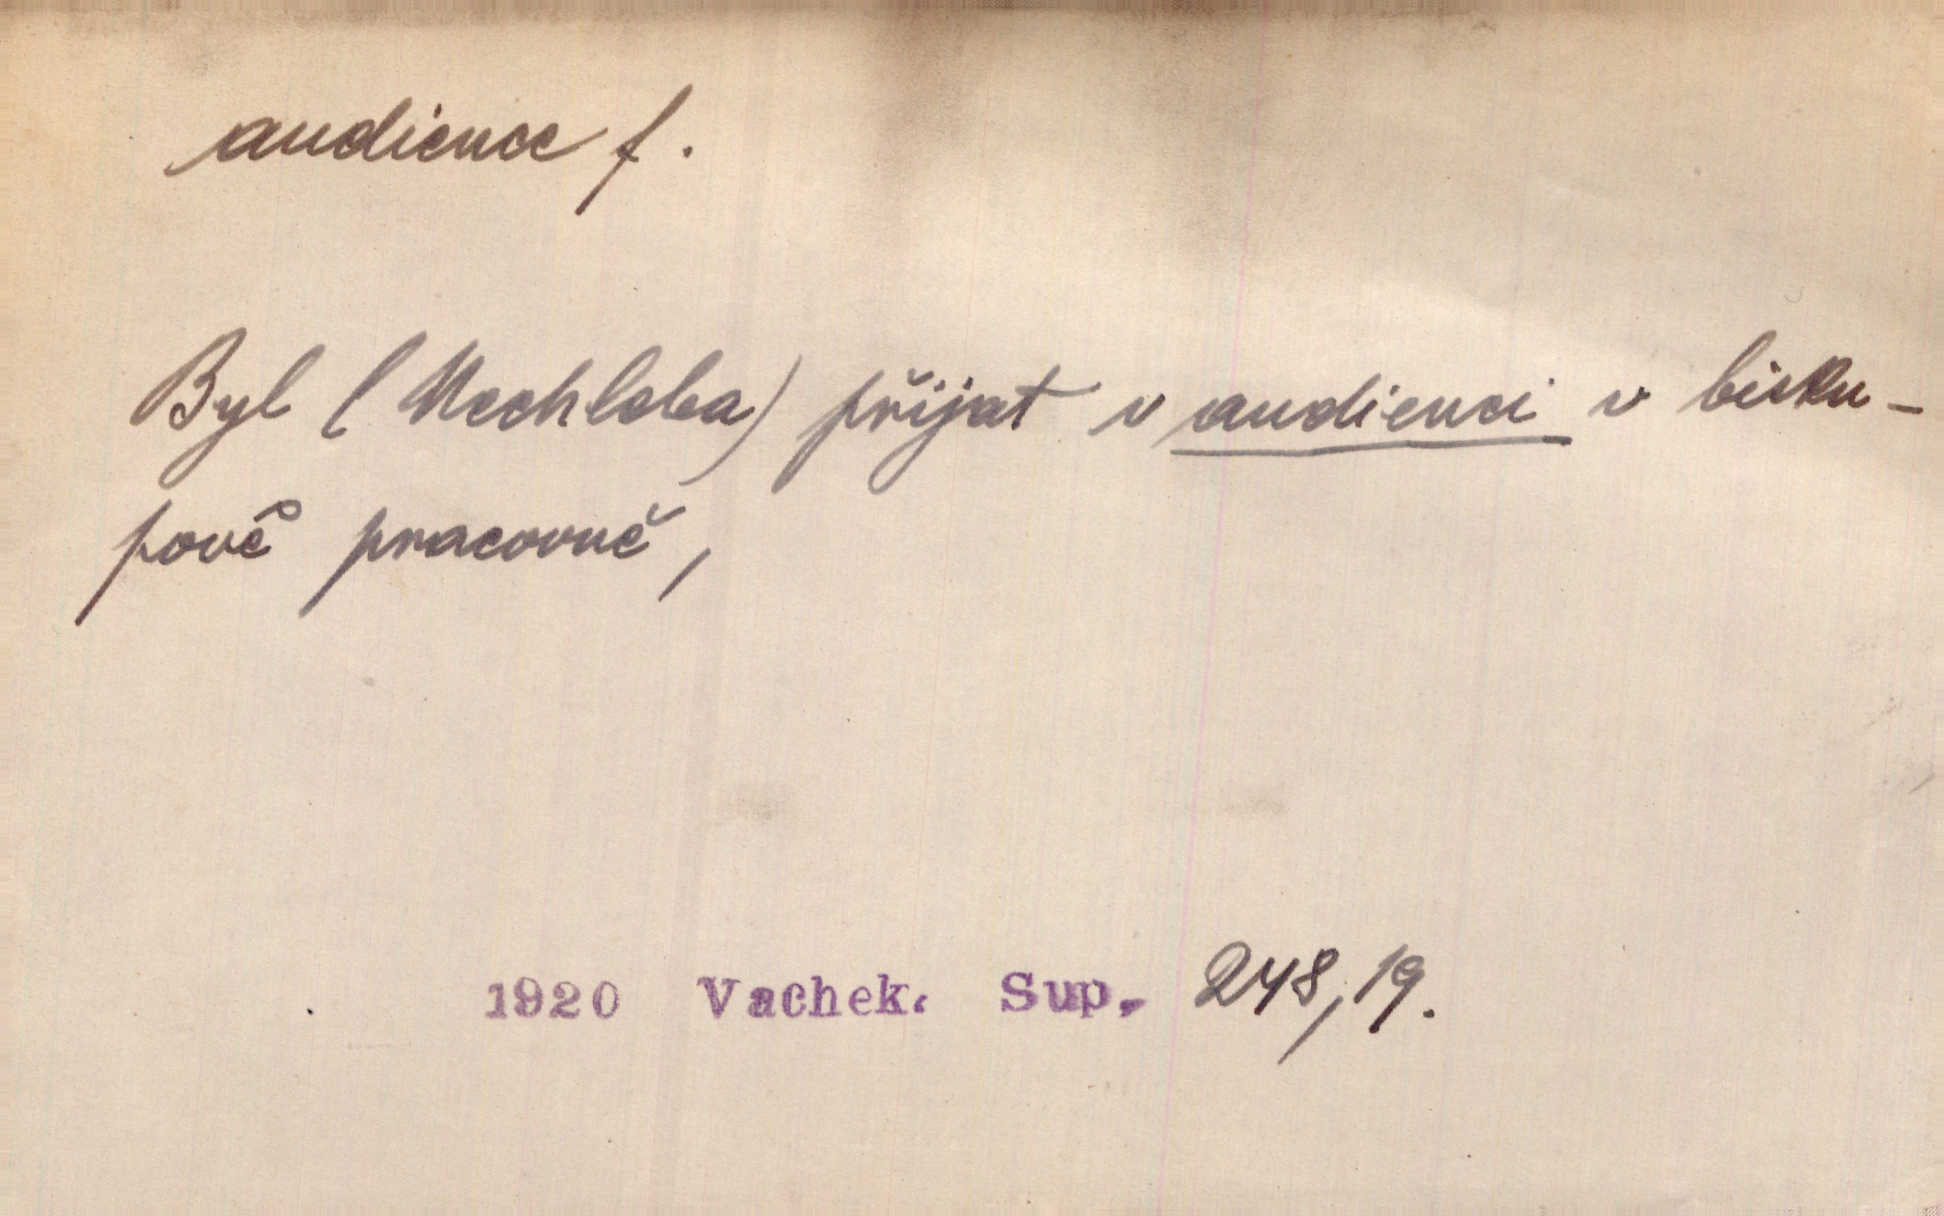 audience f.
Byl (Nechleba) přijat v audienci v bisku-
pově pracovně,
1920 Vachek. Sup. 248,19.